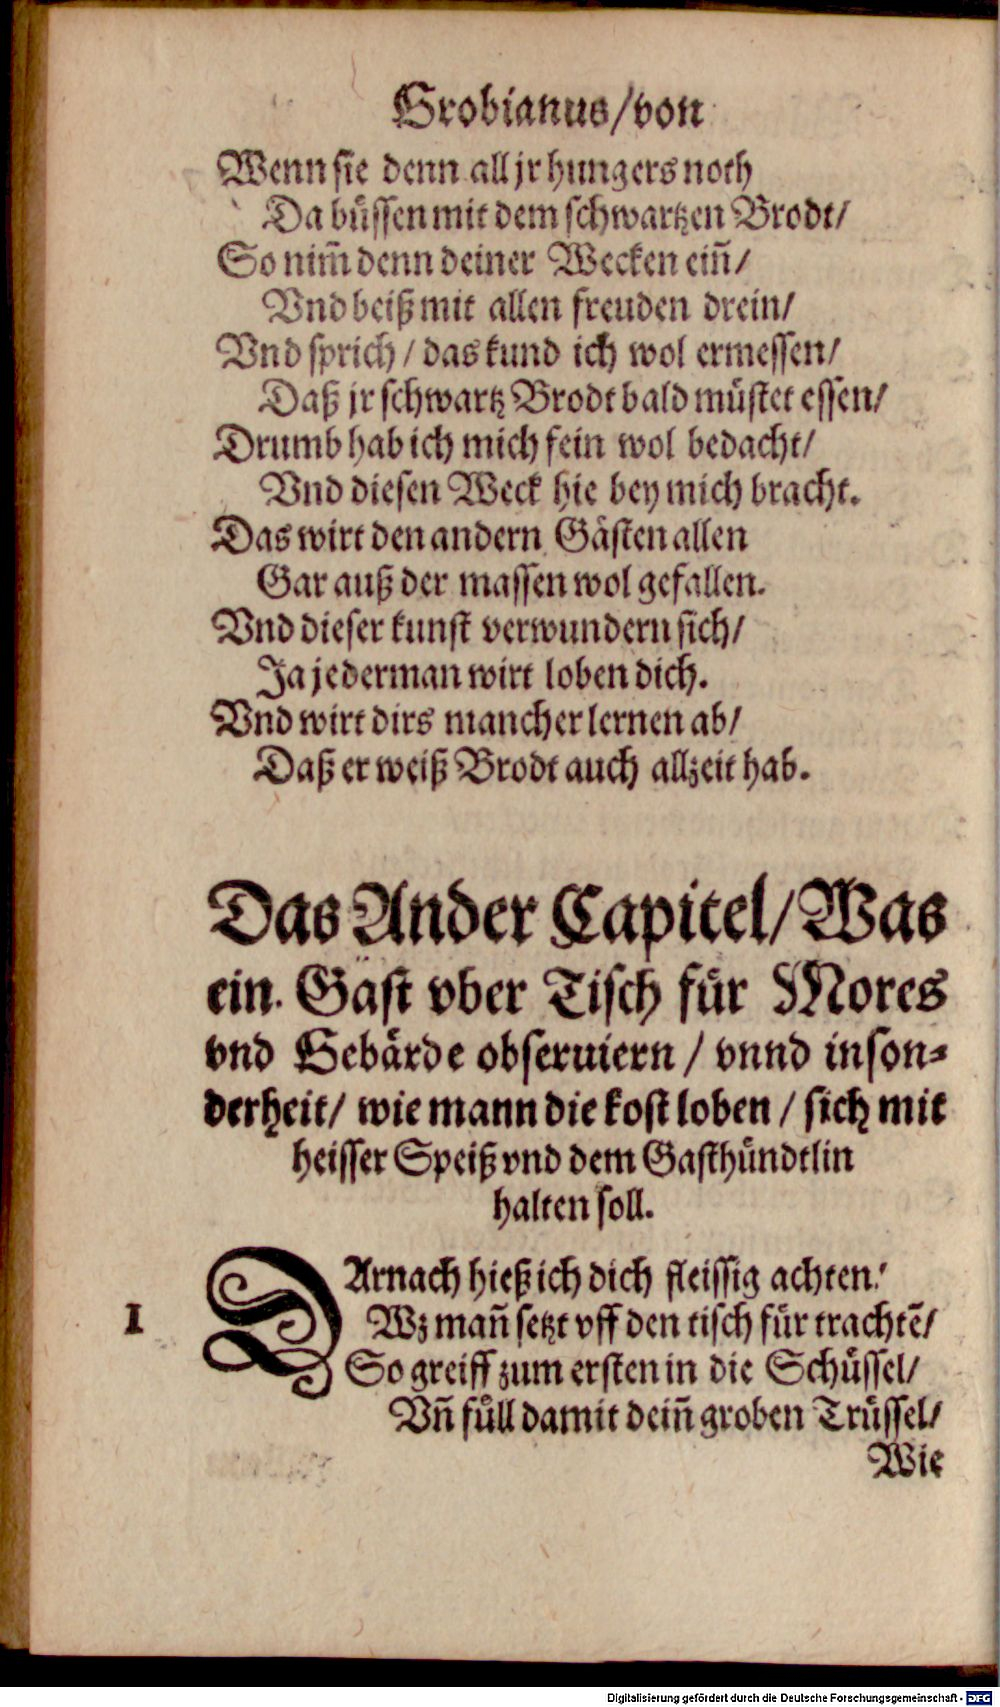 Grobianus/von
Wenn sie denn all jr hungers noth
Da büssen mit dem schwartzen Brodt/
So nim̃ denn deiner Wecken eiñ/
Vnd beiß mit allen freuden drein/
Vnd sprich/ das kund ich wol ermessen/
Daß jr schwartz Brodt bald müstet essen/
Drumb hab ich mich fein wol bedacht/
Vnd diesen Weck hie bey mich bracht.
Das wirt den andern Gästen allen
Gar auß der massen wol gefallen.
Vnd dieser kunst verwundern sich/
Ja jederman wirt loben dich.
Vnd wirt dirs mancher lernen ab/
Daß er weiß Brodt auch allzeit hab.
Das Ander Capitel/ Was
ein Gast vber Tisch für Mores
vnd Gebärde obseruiern/ vnnd inson-
derheit/ wie mann die kost loben/ sich mit
heisser Speiß vnd dem Gasthündtlin
halten soll.
DArnach hieß ich dich fleissig achten/
1 Wz mañ setzt vff den tisch für trachtẽ/
So greiff zum ersten in die Schüssel/
Vñ füll damit deiñ groben Trüssel/
Wie
Digitalisierung gefördert durch die Deutsche Forschungsgemeinschaft - DFG